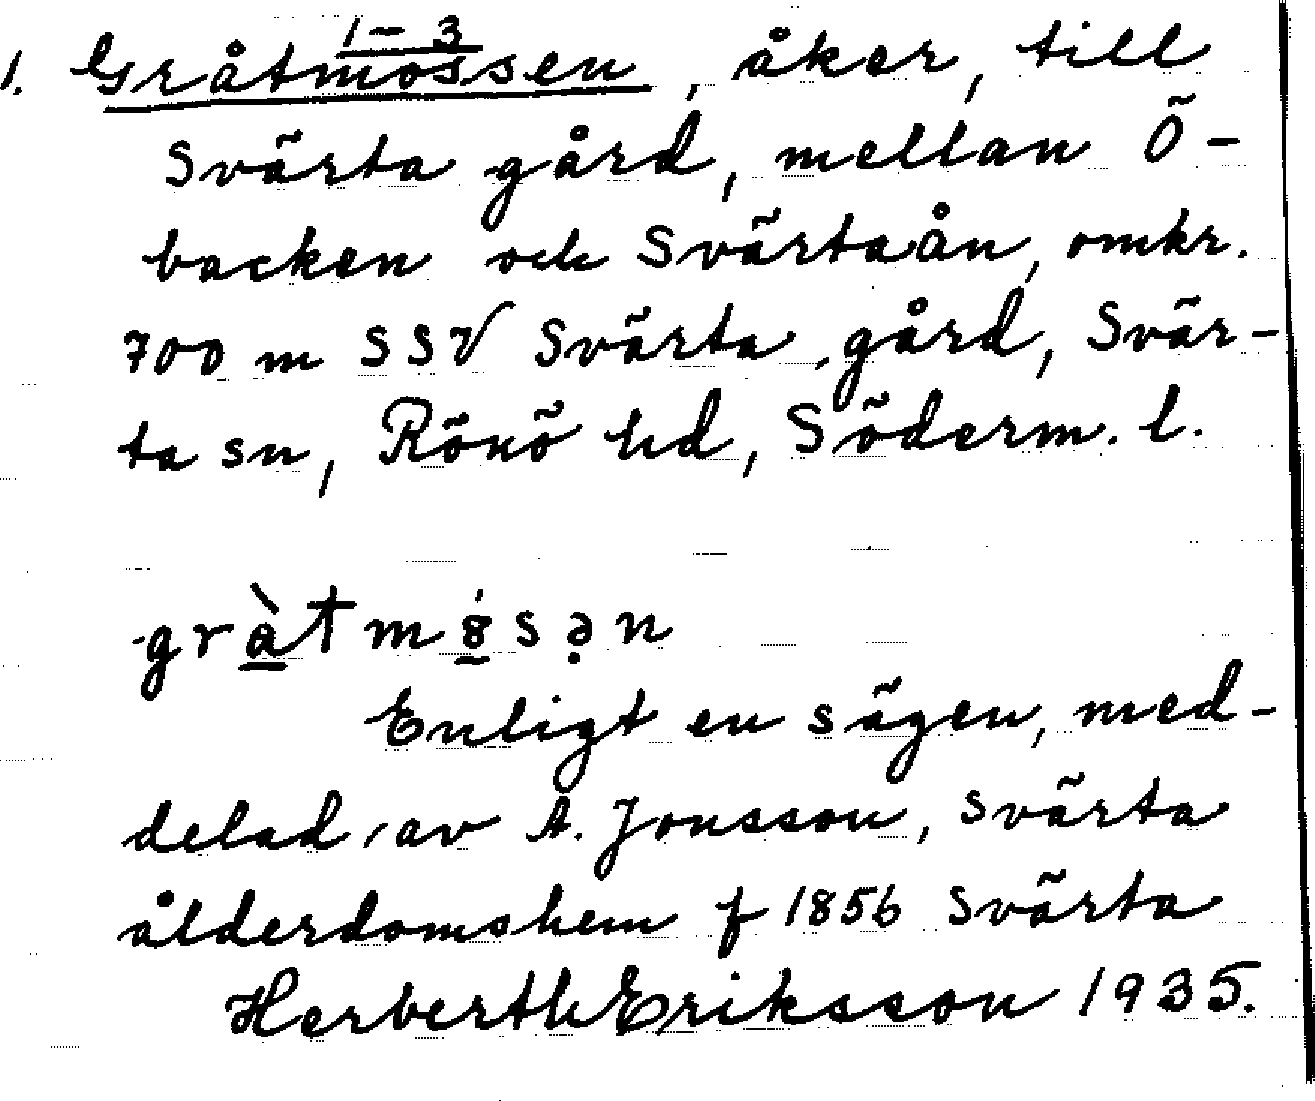 1–3
1. Gråtmossen, åker, till
Svärta gård, mellan Ö-
backen och Svärtaån, omkr.
700 m SSV Svärta gård, Svär-
ta sn, Rönö hd, Söderm. l.
Enligt en sägen, med-
delad av A. Jonsson, Svärta
ålderdomshem f 1856 Svärta
Herberth Eriksson 1935.